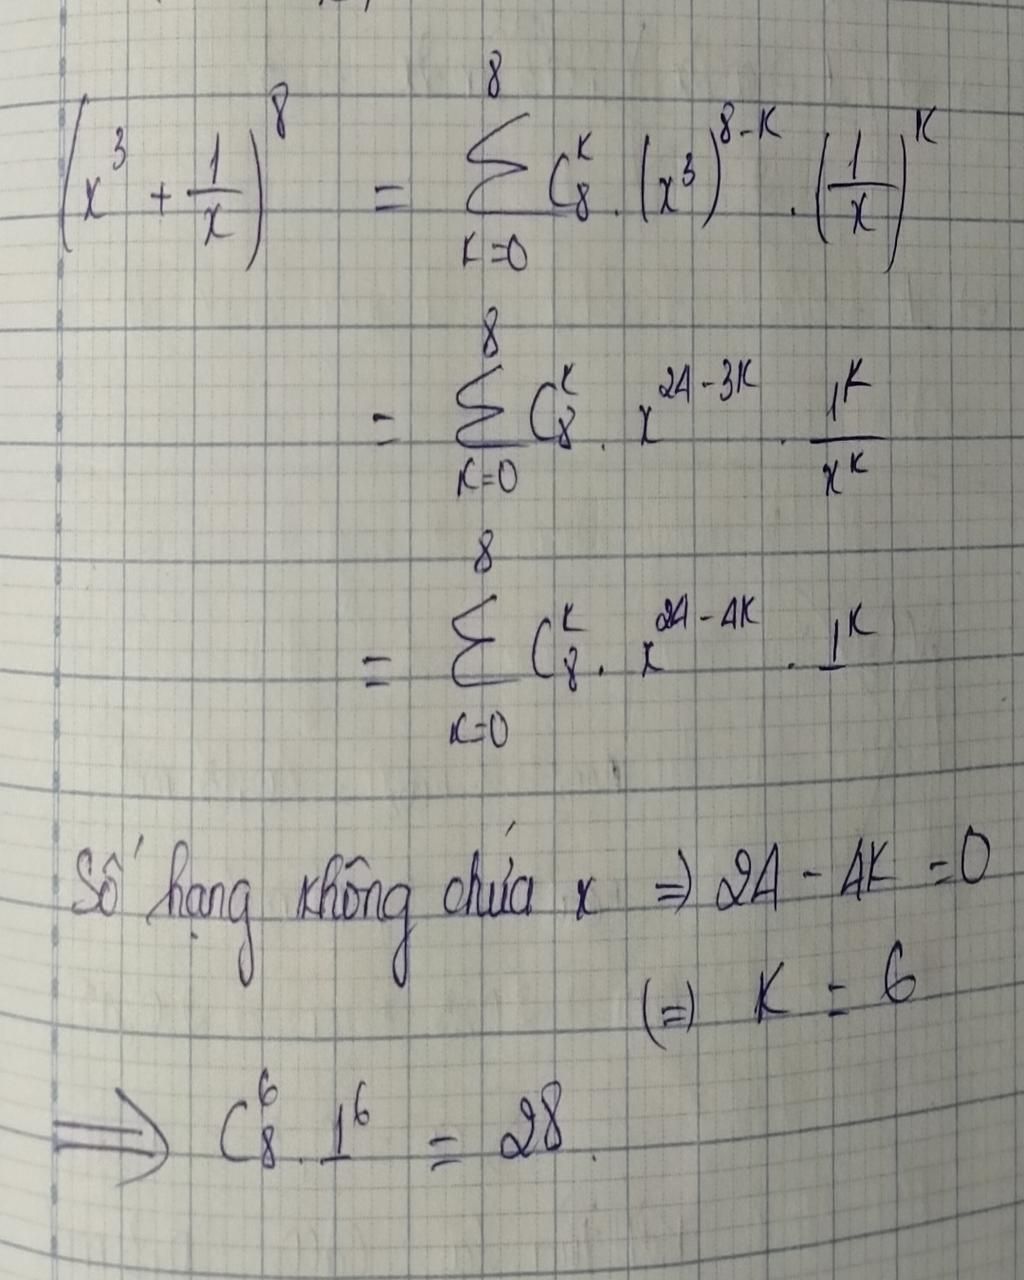 (x³ + 1/x)⁸ = ∑_{K=0}^{8} C₈ᴷ . (x³)^{8-K} . (1/x)^K
= ∑_{K=0}^{8} C₈ᴷ . x^{24-3K} . 1^K/x^K
= ∑_{K=0}^{8} C₈ᴷ . x^{24-4K} . 1^K
Số hạng không chứa x => 24 - 4K = 0
(=) K = 6
⟹ C₈⁶ . 1⁶ = 28.